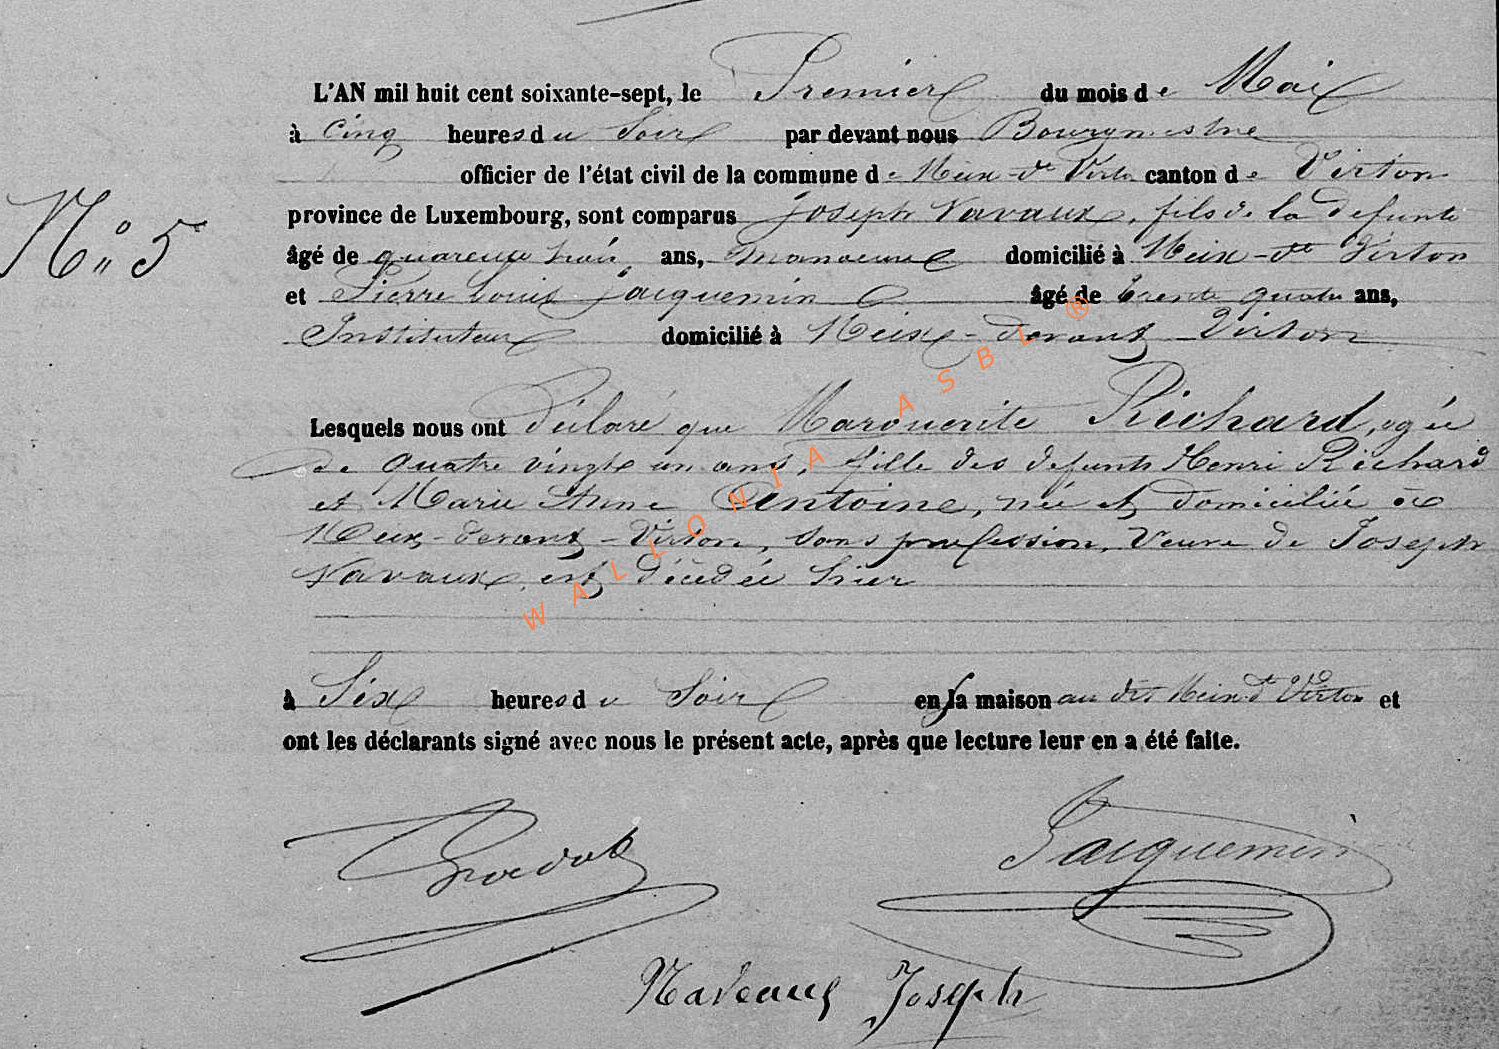 L'AN mil huit cent soixante-sept, le Premier du mois de Mai
à cinq heures du Soir par devant nous Bourgmestre
officier de l'état civil de la commune de Meix-dt Virton canton de Virton
province de Luxembourg, sont comparus Joseph Navaux, fils de la defunte
N° 5
âgé de quarente trois ans, manoeuvre domicilié à Meix-dt Virton
et Pierre Louis Jacquemin âgé de trente quatre ans,
Instituteur domicilié à Meix-devant-Virton
Lesquels nous ont déclaré que Marguerite Richard, agée
de quatre vingts un ans, fille des defunts Henri Richard
et Marie Anne Antoine, née et domiciliée à
Meix-devant-Virton, sans profession, veuve de Joseph
Navaux, est décédée hier
à Six heures du Soir en sa maison au dit Meix dt Virton et
ont les déclarants signé avec nous le présent acte, après que lecture leur en a été faite.
Jacquemin
Naveaux Joseph
WALLONIA ASBL ®